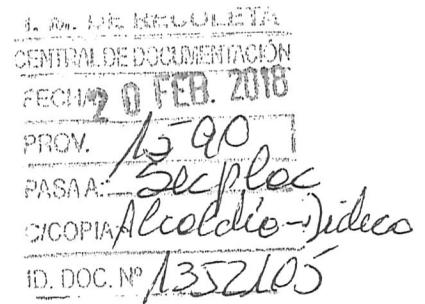 I. M. DE RECOLETA
CENTRAL DE DOCUMENTACIÓN
FECHA 20 FEB. 2018
PROV. 1590
PASA A: Secplac
C/COPIA Alcaldía-Dideco
ID. DOC. Nº 1352105